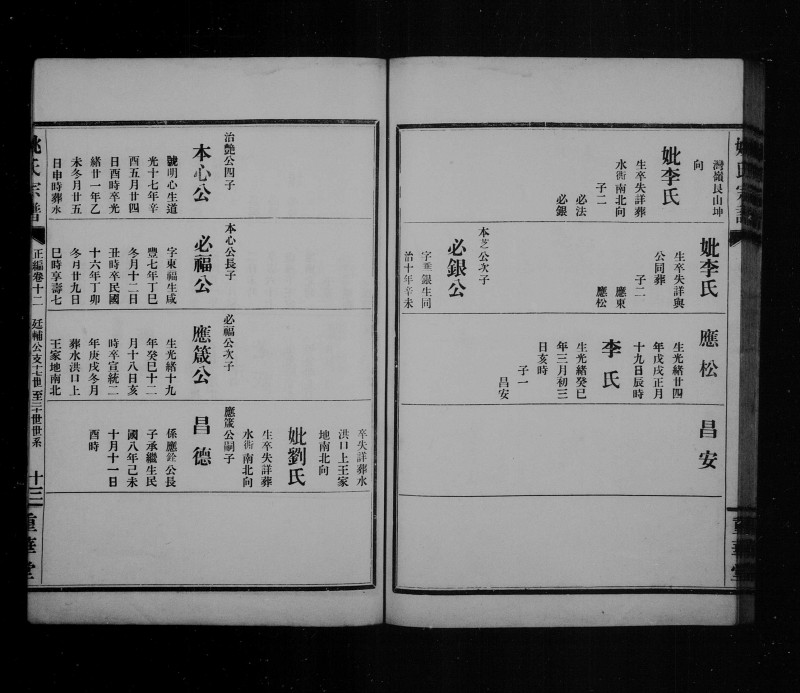 灣嶺艮山坤
向
妣李氏
生卒失詳葬
水衝南北向
子二
必法
必銀
妣李氏
生卒失詳與
公同葬
子二
應東
應松
本芝公次子
必銀公
字玉銀生同
治十年辛未
應松
生光緒廿四
年戊戌正月
十九日辰時
李氏
生光緒癸巳
年三月初三
日亥時
子一
昌安
昌安
治艷公四子
本心公
號明心生道
光十七年辛
酉五月廿四
日酉時卒光
緒廿一年乙
未冬月廿五
日申時葬水
本心公長子
必福公
字東福生咸
豐七年丁巳
冬月十二日
丑時卒民國
十六年丁卯
冬月廿九日
巳時享壽七
必福公次子
應箴公
生光緒十九
年癸巳十二
月十八日亥
時卒宣統二
年庚戌冬月
葬水洪口上
王家地南北
卒失詳葬水
洪口上王家
地南北向
妣劉氏
生卒失詳葬
水衝南北向
應箴公嗣子
昌德
係應銓公長
子承繼生民
國八年己未
十月十一日
酉時
姚氏宗譜
正編卷十二
廷輔公支十七世至二十世世系
十三
重華堂